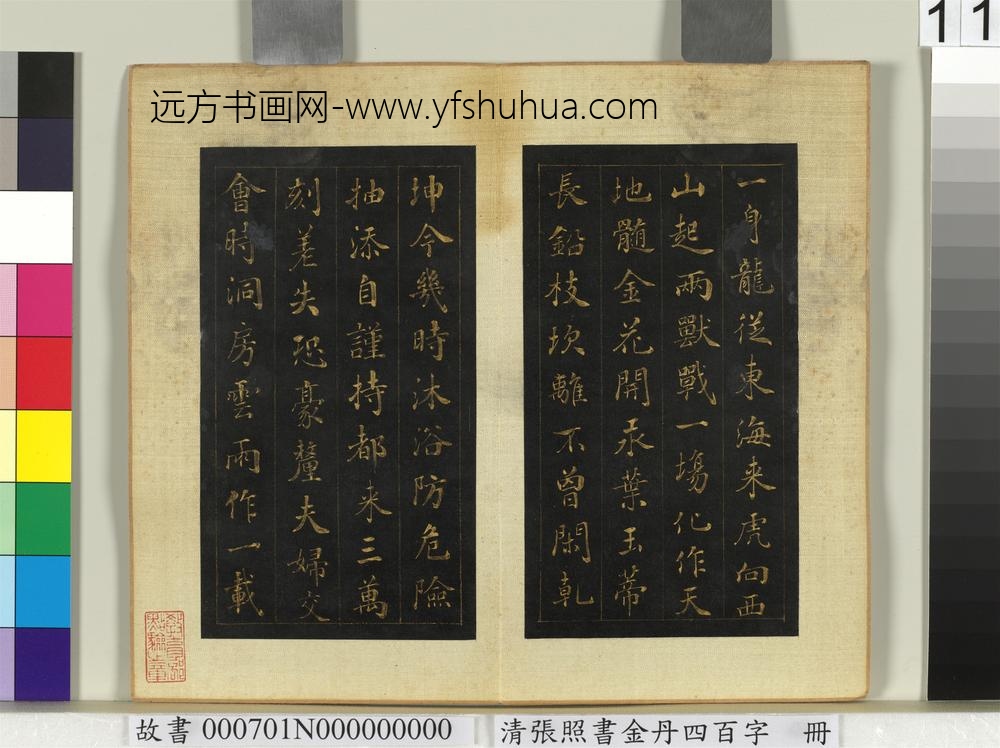 11
远方书画网-www.yfshuhua.com
一身龍從東海来虎向西
山起兩獸戰一場化作天
地髓金花開汞葉玉蒂
長鉛枝坎離不曾閑乹
坤今幾時沐浴防危險
抽添自謹持都来三萬
刻差失恐豪釐夫婦交
會時洞房雲雨作一載
故書 000701N000000000
清張照書金丹四百字 冊